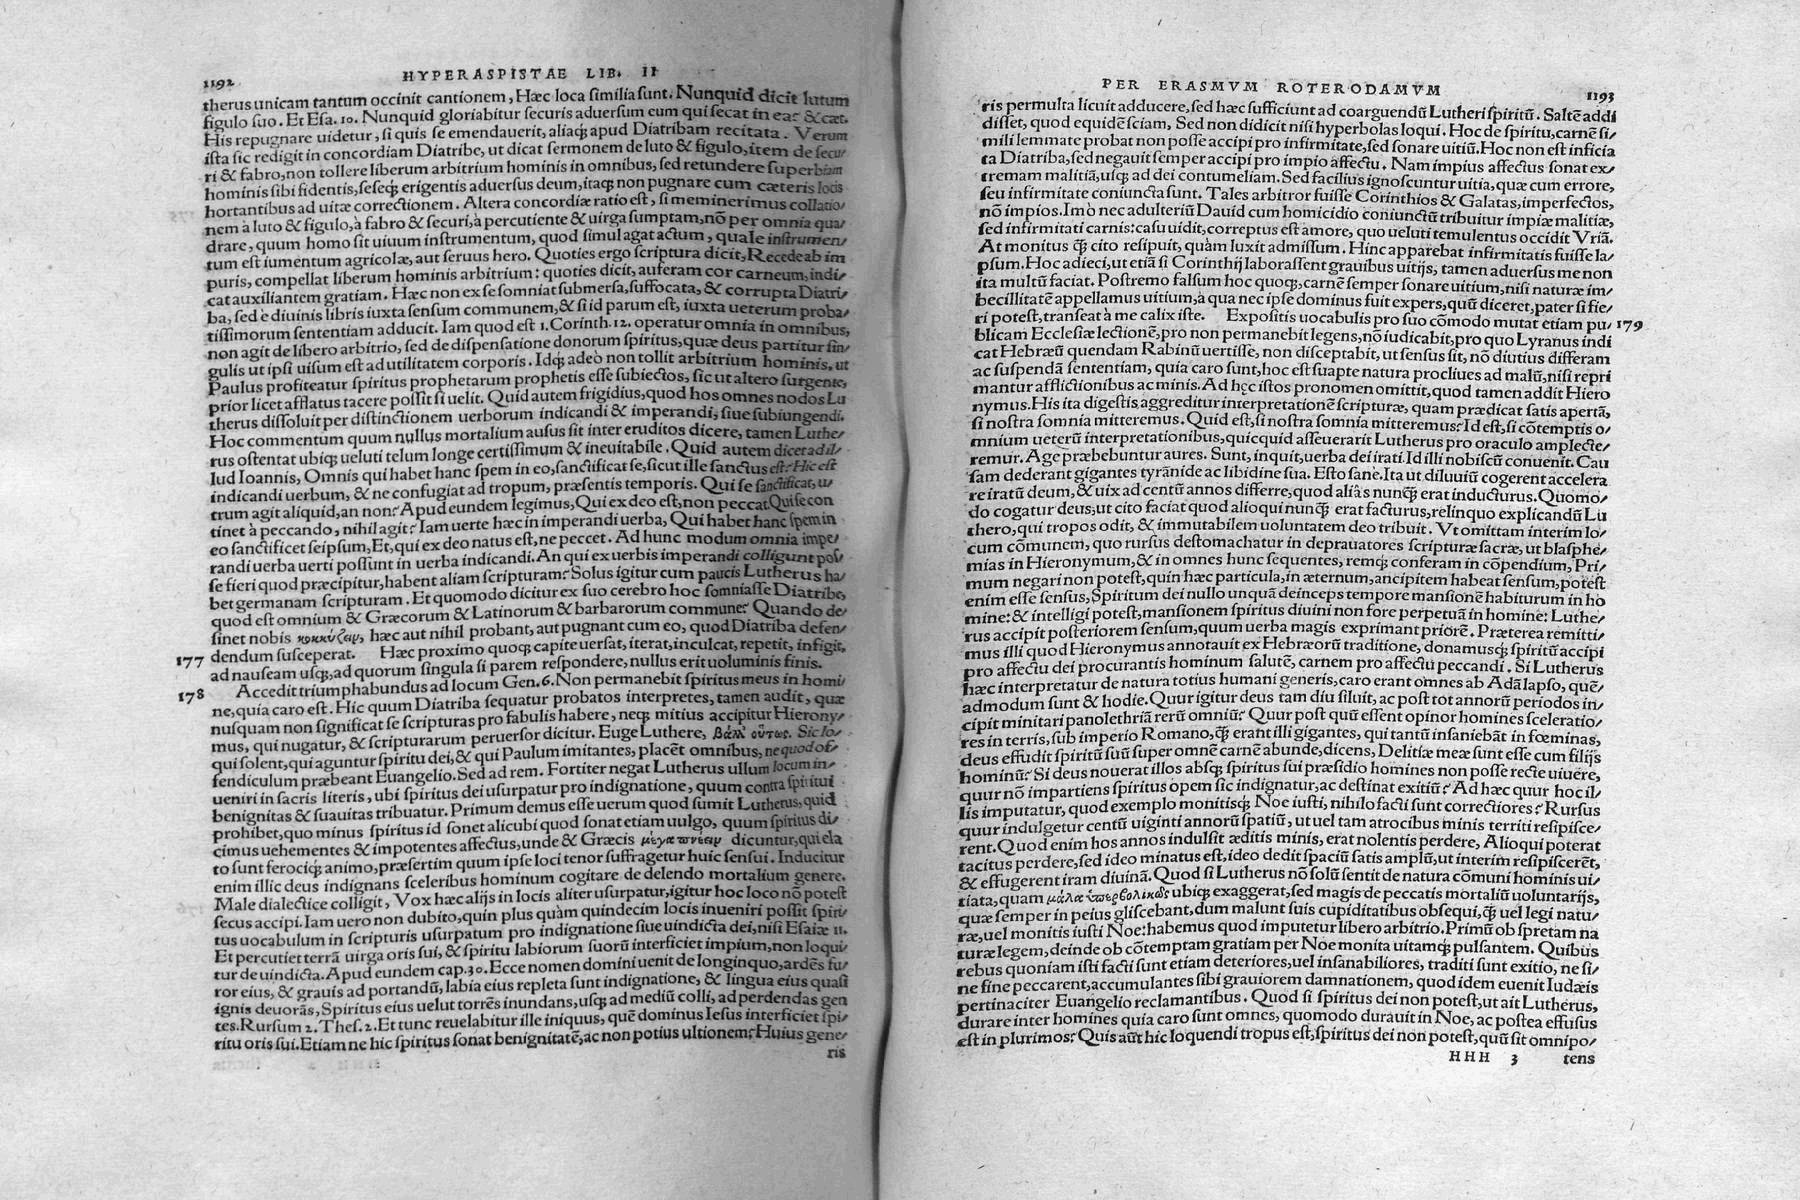 1192 HYPERASPISTAE LIB. II
therus unicam tantum occinit cantionem, Hæc loca similia sunt. Nunquid dicit lutum
figulo suo. Et Esa. 10. Nunquid gloriabitur securis aduersum eum qui secat in ea: &cæt.
His repugnare uidetur, si quis se emendauerit, aliaq; apud Diatribam recitata. Verum
ista sic redigit in concordiam Diatribe, ut dicat sermonem de luto & figulo, item de secu/
ri & fabro, non tollere liberum arbitrium hominis in omnibus, sed retundere superbiam
hominis sibi fidentis, seseq; erigentis aduersus deum, itaq; non pugnare cum cæteris locis
hortantibus ad uitæ correctionem. Altera concordiæ ratio est, si meminerimus collatio/
nem à luto & figulo, à fabro & securi, à percutiente & uirga sumptam, nõ per omnia qua/
drare, quum homo sit uiuum instrumentum, quod simul agat actum, quale instrumen/
tum est iumentum agricolæ, aut seruus hero. Quoties ergo scriptura dicit, Recede ab im
puris, compellat liberum hominis arbitrium: quoties dicit, auferam cor carneum, indi/
cat auxiliantem gratiam. Hæc non ex se somniat submersa, suffocata, & corrupta Diatri/
ba, sed e diuinis libris iuxta sensum communem, & si id parum est, iuxta ueterum proba/
tissimorum sententiam adducit. Iam quod est 1. Corinth. 12. operatur omnia in omnibus,
non agit de libero arbitrio, sed de dispensatione donorum spiritus, quæ deus partitur sin/
gulis ut ipsi uisum est ad utilitatem corporis. Idq; adeò non tollit arbitrium hominis, ut
Paulus profiteatur spiritus prophetarum prophetis esse subiectos, sic ut altero surgente,
prior licet afflatus tacere possit si uelit. Quid autem frigidius, quod hos omnes nodos Lu
therus dissoluit per distinctionem uerborum indicandi & imperandi, siue subiungendi.
Hoc commentum quum nullus mortalium ausus sit inter eruditos dicere, tamen Luthe/
rus ostentat ubiq; ueluti telum longe certissimum & ineuitabile. Quid autem dicet ad il/
lud Ioannis, Omnis qui habet hanc spem in eo, sanctificat se, sicut ille sanctus est? Hic est
indicandi uerbum, & ne confugiat ad tropum, præsentis temporis. Qui se sanctificat, u/
trum agit aliquid, an non? Apud eundem legimus, Qui ex deo est, non peccat. Qui se con
tinet à peccando, nihil agit? Iam uerte hæc in imperandi uerba, Qui habet hanc spem in
eo sanctificet seipsum, Et, qui ex deo natus est, ne peccet. Ad hunc modum omnia impe/
randi uerba uerti possunt in uerba indicandi. An qui ex uerbis imperandi colligunt pos/
se fieri quod præcipitur, habent aliam scripturam? Solus igitur cum paucis Lutherus ha/
bet germanam scripturam. Et quomodo dicitur ex suo cerebro hoc somniasse Diatribe,
quod est omnium & Græcorum & Latinorum & barbarorum commune? Quando de/
sinet nobis κοκκύζειν, hæc aut nihil probant, aut pugnant cum eo, quod Diatriba defen/
177 dendum susceperat. Hæc proximo quoq; capite uersat, iterat, inculcat, repetit, infigit,
ad nauseam usq;, ad quorum singula si parem respondere, nullus erit uoluminis finis.
178 Accedit triumphabundus ad locum Gen. 6. Non permanebit spiritus meus in homi/
ne, quia caro est. Hic quum Diatriba sequatur probatos interpretes, tamen audit, quæ
nusquam non significat se scripturas pro fabulis habere, neq; mitius accipitur Hierony/
mus, qui nugatur, & scripturarum peruersor dicitur. Euge Luthere, βάλλ' οὕτως. Sic lo/
qui solent, qui aguntur spiritu dei, & qui Paulum imitantes, placẽt omnibus, ne quod of/
fendiculum præbeant Euangelio. Sed ad rem. Fortiter negat Lutherus ullum locum in/
ueniri in sacris literis, ubi spiritus dei usurpatur pro indignatione, quum contra spiritui
benignitas & suauitas tribuatur. Primum demus esse uerum quod sumit Lutherus, quid
prohibet, quo minus spiritus id sonet alicubi quod sonat etiam uulgo, quum spiritus di/
cimus uehementes & impotentes affectus, unde & Græcis μέγα πνέειν dicuntur, qui ela
to sunt ferociq; animo, præsertim quum ipse loci tenor suffragetur huic sensui. Inducitur
enim illic deus indignans sceleribus hominum cogitare de delendo mortalium genere.
Male dialectice colligit, Vox hæc alijs in locis aliter usurpatur, igitur hoc loco nõ potest
secus accipi. Iam uero non dubito, quin plus quàm quindecim locis inueniri possit spiri/
tus uocabulum in scripturis usurpatum pro indignatione siue uindicta dei, nisi Esaiæ 11.
Et percutiet terrã uirga oris sui, & spiritu labiorum suorũ interficiet impium, non loqui/
tur de uindicta. Apud eundem cap. 30. Ecce nomen domini uenit de longinquo, ardẽs fu/
ror eius, & grauis ad portandũ, labia eius repleta sunt indignatione, & lingua eius quasi
ignis deuorãs, Spiritus eius uelut torrẽs inundans, usq; ad mediũ colli, ad perdendas gen
tes. Rursum 2. Thes. 2. Et tunc reuelabitur ille iniquus, quẽ dominus Iesus interficiet spi/
ritu oris sui. Etiam ne hic spiritus sonat benignitatẽ, ac non potius ultionem? Huius gene/
ris
PER ERASMVM ROTERODAMVM 1193
ris permulta licuit adducere, sed hæc sufficiunt ad coarguendũ Lutheri spiritũ. Saltẽ addi
disset, quod equidẽ sciam, Sed non didicit nisi hyperbolas loqui. Hoc de spiritu, carnẽ si/
mili lemmate probat non posse accipi pro infirmitate, sed sonare uitiũ. Hoc non est inficia
ta Diatriba, sed negauit semper accipi pro impio affectu. Nam impius affectus sonat ex/
tremam malitiã, usq; ad dei contumeliam. Sed facilius ignoscuntur uitia, quæ cum errore,
seu infirmitate coniuncta sunt. Tales arbitror fuisse Corinthios & Galatas, imperfectos,
nõ impios. Imò nec adulteriũ Dauid cum homicidio coniunctũ tribuitur impiæ malitiæ,
sed infirmitati carnis: casu uidit, correptus est amore, quo ueluti temulentus occidit Vriã.
At monitus q̃ cito resipuit, quàm luxit admissum. Hinc apparebat infirmitatis fuisse la/
psum. Hoc adieci, ut etiã si Corinthij laborassent grauibus uitijs, tamen aduersus me non
ita multũ faciat. Postremo falsum hoc quoq;, carnẽ semper sonare uitium, nisi naturæ im/
becillitatẽ appellamus uitium, à qua nec ipse dominus fuit expers, quũ diceret, pater si fie/
ri potest, transeat à me calix iste. Expositis uocabulis pro suo cõmodo mutat etiam pu/ 179
blicam Ecclesiæ lectionẽ, pro non permanebit legens, nõ iudicabit, pro quo Lyranus indi
cat Hebræũ quendam Rabinũ uertisse, non disceptabit, ut sensus sit, nõ diutius differam
ac suspendã sententiam, quia caro sunt, hoc est suapte natura procliues ad malũ, nisi repri
mantur afflictionibus ac minis. Ad hęc istos pronomen omittit, quod tamen addit Hiero
nymus. His ita digestis, aggreditur interpretationẽ scripturæ, quam prædicat satis apertã,
si nostra somnia mitteremus. Quid est, si nostra somnia mitteremus? Id est, si cõtemptis o/
mnium ueterũ interpretationibus, quicquid asseuerarit Lutherus pro oraculo amplecte/
remur. Age præbebuntur aures. Sunt, inquit, uerba dei irati. Id illi nobiscũ conuenit. Cau
sam dederant gigantes tyrãnide ac libidine sua. Esto sanè. Ita ut diluuiũ cogerent accelera
re iratũ deum, & uix ad centũ annos differre, quod aliàs nunq̃ erat inducturus. Quomo/
do cogatur deus, ut cito faciat quod alioqui nunq̃ erat facturus, relinquo explicandũ Lu
thero, qui tropos odit, & immutabilem uoluntatem deo tribuit. Vt omittam interim lo/
cum cõmunem, quo rursus destomachatur in deprauatores scripturæ sacræ, ut blasphe/
mias in Hieronymum, & in omnes hunc sequentes, remq; conferam in cõpendium, Pri/
mum negari non potest, quin hæc particula, in æternum, ancipitem habeat sensum, potest
enim esse sensus, Spiritum dei nullo unquã deinceps tempore mansionẽ habiturum in ho
mine: & intelligi potest, mansionem spiritus diuini non fore perpetuã in homine: Luthe/
rus accipit posteriorem sensum, quum uerba magis exprimant priorẽ. Præterea remitti/
mus illi quod Hieronymus annotauit ex Hebræorũ traditione, donamusq; spiritũ accipi
pro affectu dei procurantis hominum salutẽ, carnem pro affectu peccandi. Si Lutherus
hæc interpretatur de natura totius humani generis, caro erant omnes ab Adã lapso, quẽ/
admodum sunt & hodie. Quur igitur deus tam diu siluit, ac post tot annorũ periodos in/
cipit minitari panolethriã rerũ omniũ? Quur post quũ essent opinor homines sceleratio/
res in terris, sub imperio Romano, q̃ erant illi gigantes, qui tantũ insaniebãt in fœminas,
deus effudit spiritũ suũ super omnẽ carnẽ abunde, dicens, Delitiæ meæ sunt esse cum filijs
hominũ? Si deus nouerat illos absq; spiritus sui præsidio homines non posse recte uiuere,
quur nõ impartiens spiritus opem sic indignatur, ac destinat exitiũ? Ad hæc quur hoc il/
lis imputatur, quod exemplo monitisq; Noe iusti, nihilo facti sunt correctiores? Rursus
quur indulgetur centũ uiginti annorũ spatiũ, ut uel tam atrocibus minis territi resipisce/
rent. Quod enim hos annos indulsit æditis minis, erat nolentis perdere, Alioqui poterat
tacitus perdere, sed ideo minatus est, ideo dedit spaciũ satis amplũ, ut interim resipiscerẽt,
& effugerent iram diuinã. Quod si Lutherus nõ solũ sentit de natura cõmuni hominis ui/
tiata, quam μάλα ὑπερβολικῶς ubiq; exaggerat, sed magis de peccatis mortaliũ uoluntarijs,
quæ semper in peius gliscebant, dum malunt suis cupiditatibus obsequi, q̃ uel legi natu/
ræ, uel monitis iusti Noe: habemus quod imputetur libero arbitrio. Primũ ob spretam na
turæ legem, deinde ob cõtemptam gratiam per Noe monita uitamq; pulsantem. Quibus
rebus quoniam isti facti sunt etiam deteriores, uel insanabiliores, traditi sunt exitio, ne si/
ne fine peccarent, accumulantes sibi grauiorem damnationem, quod idem euenit Iudæis
pertinaciter Euangelio reclamantibus. Quod si spiritus dei non potest, ut ait Lutherus,
durare inter homines quia caro sunt omnes, quomodo durauit in Noe, ac postea effusus
est in plurimos? Quis aũt hic loquendi tropus est, spiritus dei non potest, quũ sit omnipo/
HHH 3 tens